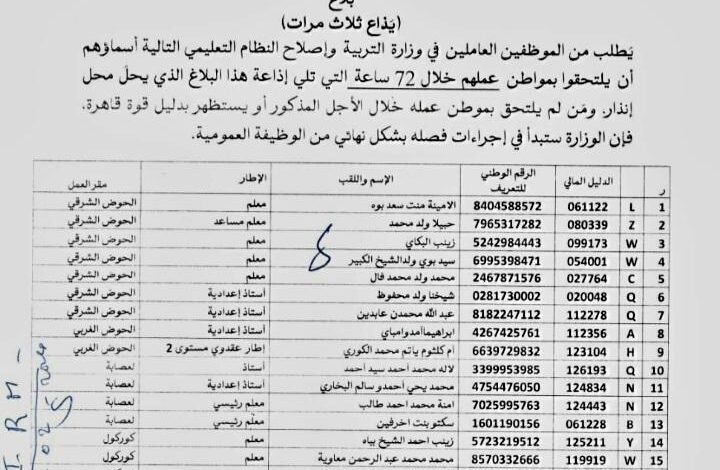 بلاغ
(يُذاع ثلاث مرات)
يُطلب من الموظفين العاملين في وزارة التربية وإصلاح النظام التعليمي التالية أسماؤهم
أن يلتحقوا بمواطن عملهم خلال 72 ساعة التي تلي إذاعة هذا البلاغ الذي يحلّ محل
إنذار. ومَن لم يلتحق بموطن عمله خلال الأجل المذكور أو يستظهر بدليل قوة قاهرة،
فإن الوزارة ستبدأ في إجراءات فصله بشكل نهائي من الوظيفة العمومية.
ر الدليل المالي الرقم الوطني للتعريف الإسم واللقب الإطار مقر العمل
1 L 061122 8404588572 الامينة منت سعد بوه معلم الحوض الشرقي
2 Z 080339 7965317282 حبيلا ولد محمد معلم مساعد الحوض الشرقي
3 W 099173 5242984443 زينب البكاي معلم الحوض الشرقي
4 W 054001 6995398471 سيد بوي ولدالشيخ الكبير معلم الحوض الشرقي
5 C 027764 2467871576 محمد ولد محمد فال معلم الحوض الشرقي
6 Q 020048 0281730002 شيخنا ولد محفوظ أستاذ إعدادية الحوض الشرقي
7 Q 112278 8182247112 عبد الله محمدن عابدين أستاذ إعدادية الحوض الشرقي
8 A 112356 4267425761 ابراهيماأمدوامباي أستاذ إعدادية الحوض الغربي
9 H 123104 6639729832 ام كلثوم ياتم محمد الكوري إطار عقدوي مستوى 2 الحوض الغربي
10 Q 126193 3399953985 لاله محمد أحمد سيد أحمد أستاذ لعصابة
11 N 124834 4754476050 محمد يحي أحمدو سالم البخاري أستاذ إعدادية لعصابة
12 N 124443 7025995763 امنة محمد احمد طالب معلم رئيسي لعصابة
13 B 061228 1601190156 سكتو بنت اخرفين معلم رئيسي لعصابة
14 Y 125211 5723219512 زينب احمد الشيخ بياه معلم كوركول
15 W 119919 8570332666 محمد محمد عبد الرحمن معاوية معلم كوركول
I R M -